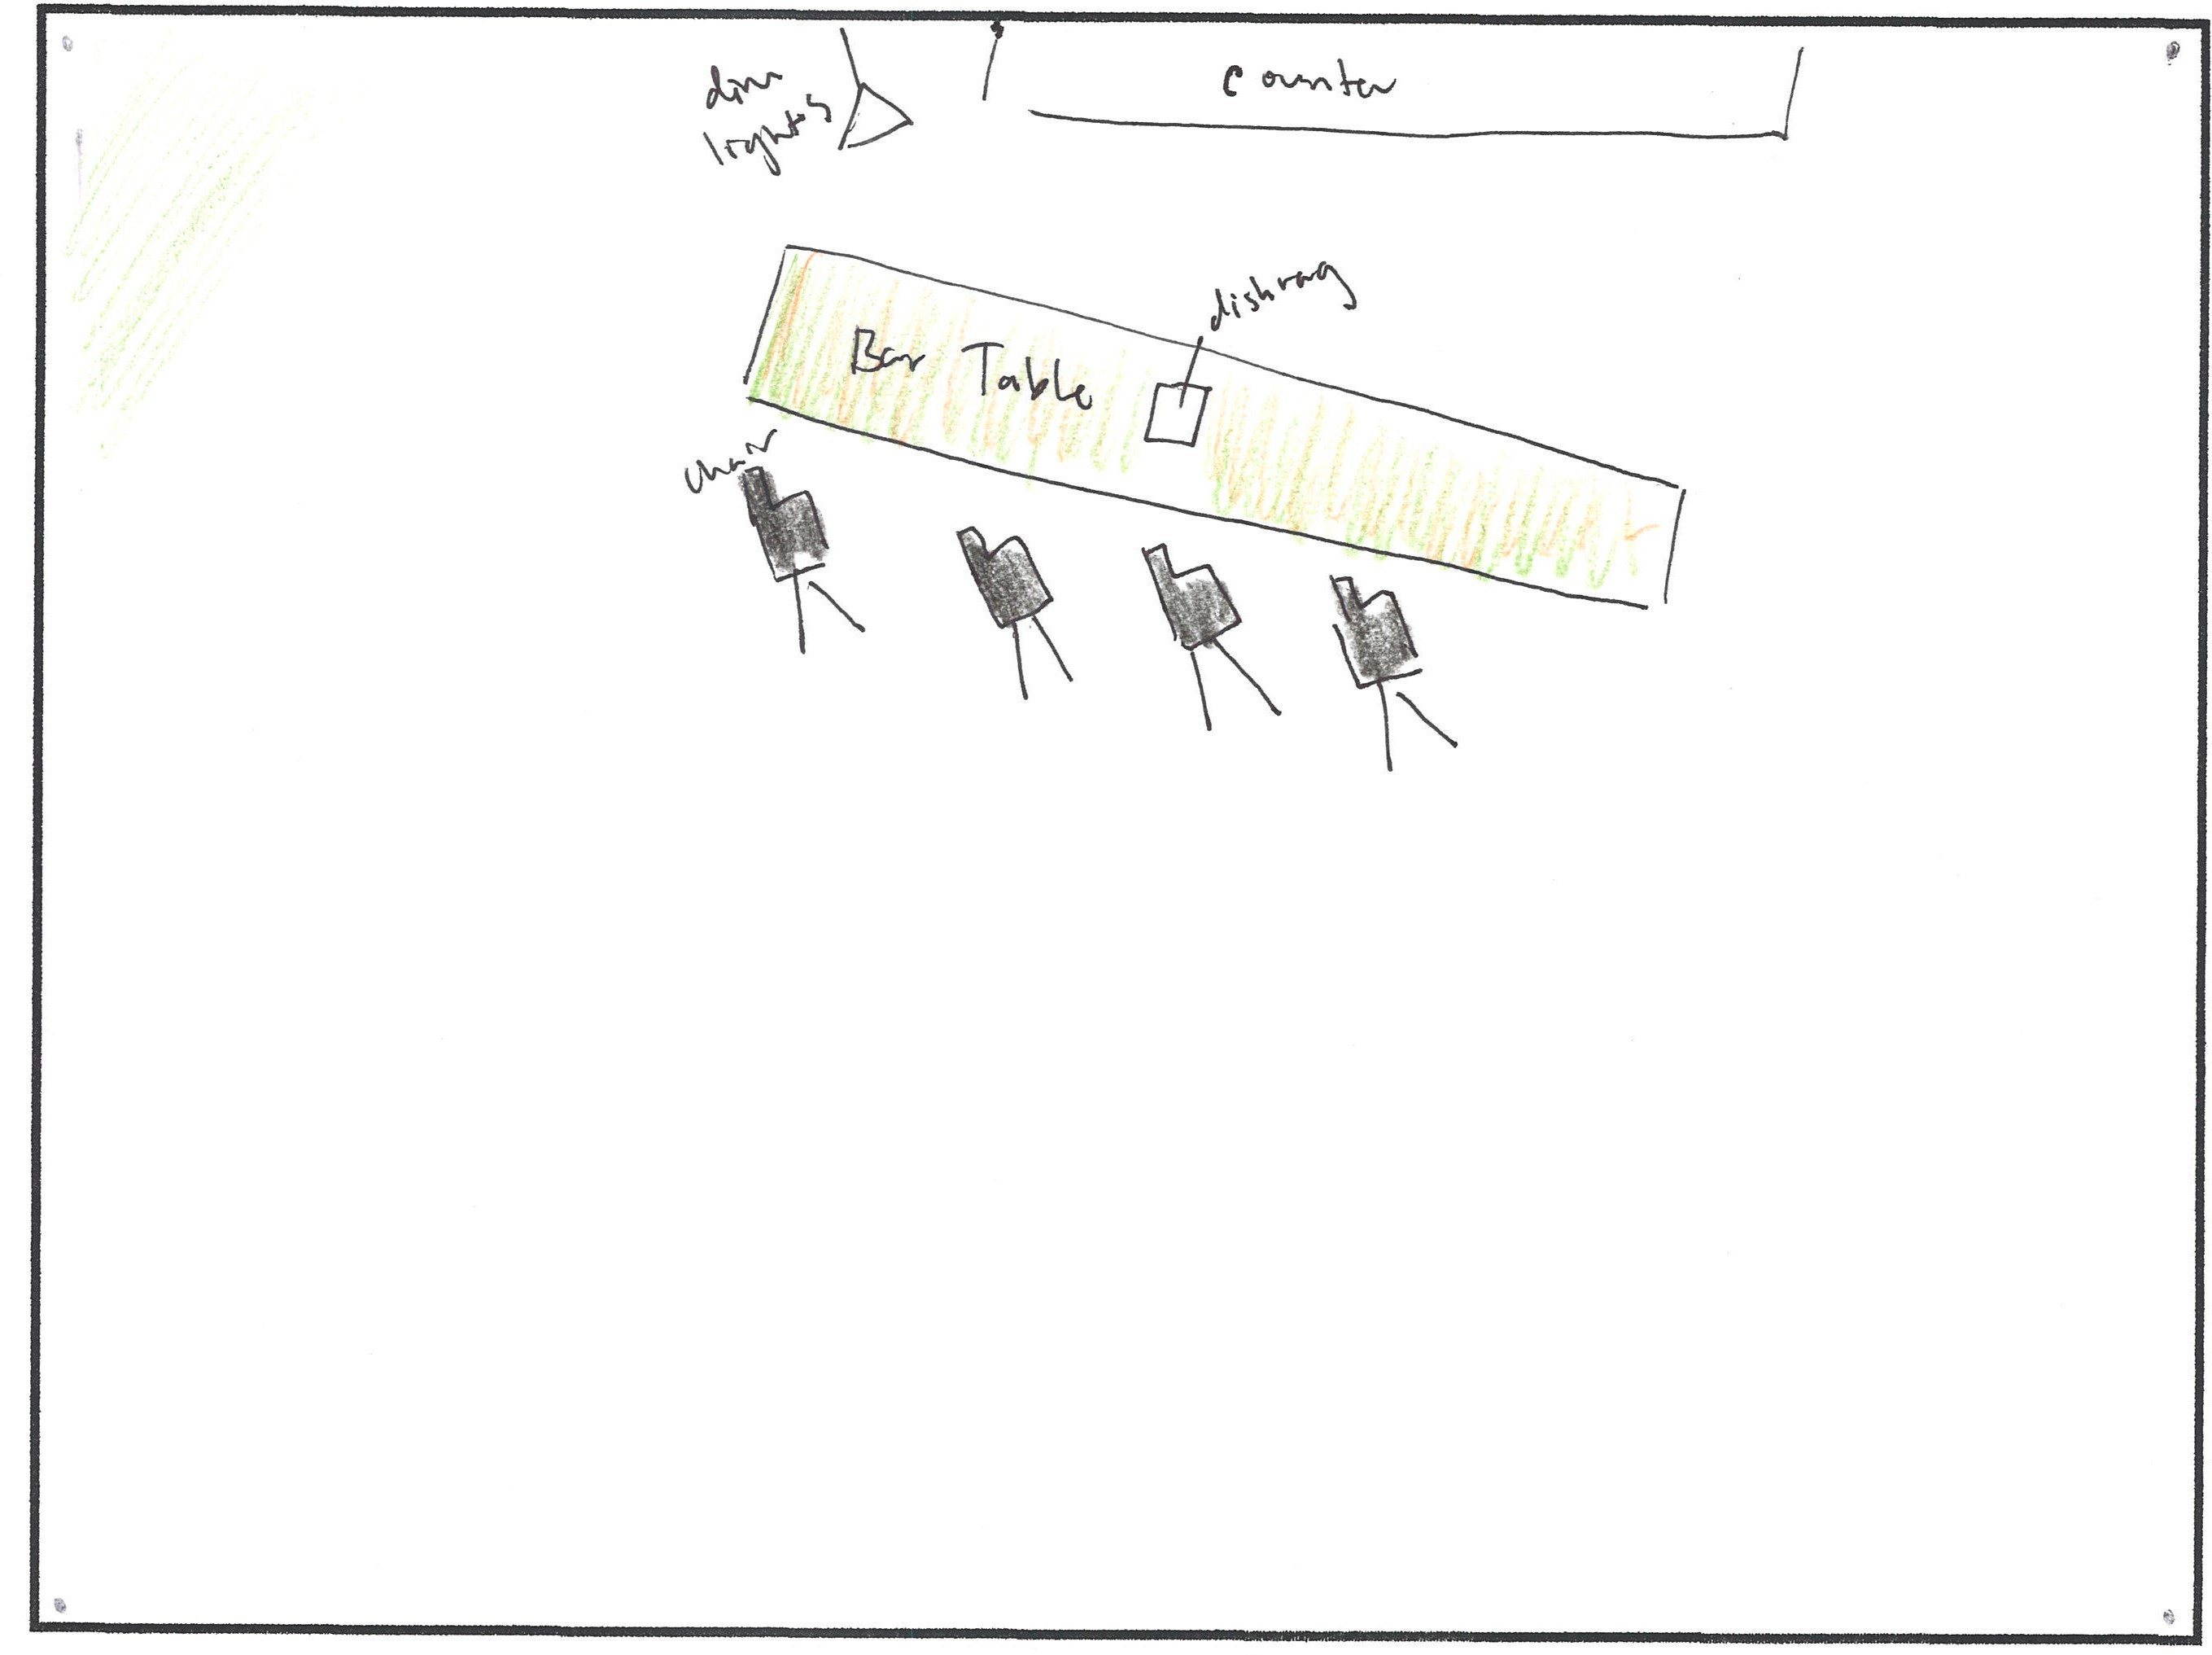 dim
lights
counter
dishrag
Bar Table
chair